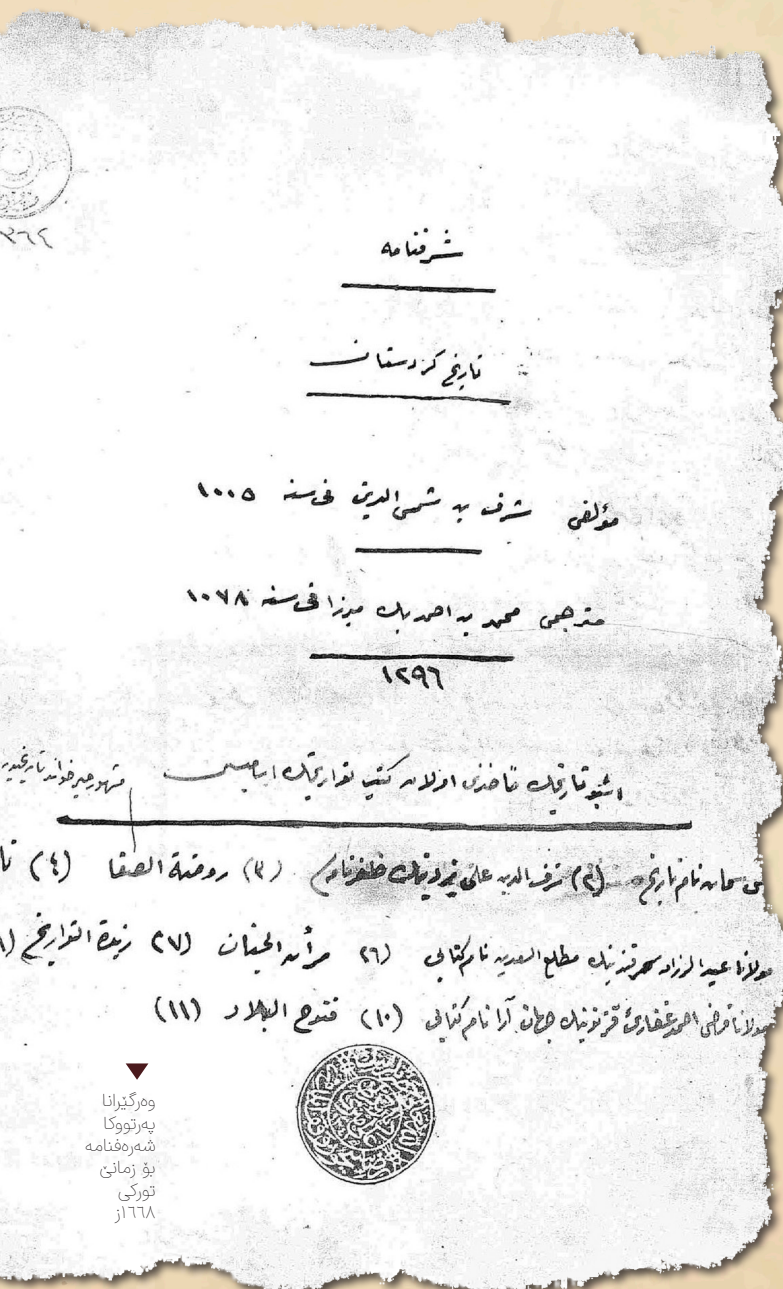 شرفنامه
تاريخ كردستان
مؤلفى شرف بن شمس الدين فى سنه ١٠٠٥
مترجمى محمد بن احمد بك ميرزا فى سنه ١٠٧٨
١٢٩٦
اشبو تاريخك مأخذى اولان كتب تواريخك اساميسى
مشهور ميرخواند تاريخيدر
نام تاريخ (٢) شرف الدين على يزدينك ظفرنامه (٣) روضة الصفا (٤)
مولانا عبد الرزاق سمرقندينك مطلع السعدين نام كتابى (٦) مرآت الجنان (٧) زبدة التواريخ
مولانا قاضى احمد غفارئ قزوينينك جهان آرا نام كتابى (١٠) فتوح البلاد (١١)
وەرگێرانا
پەرتووکا
شەرەفنامە
بۆ زمانێ
تورکی
١٦٦٨ز